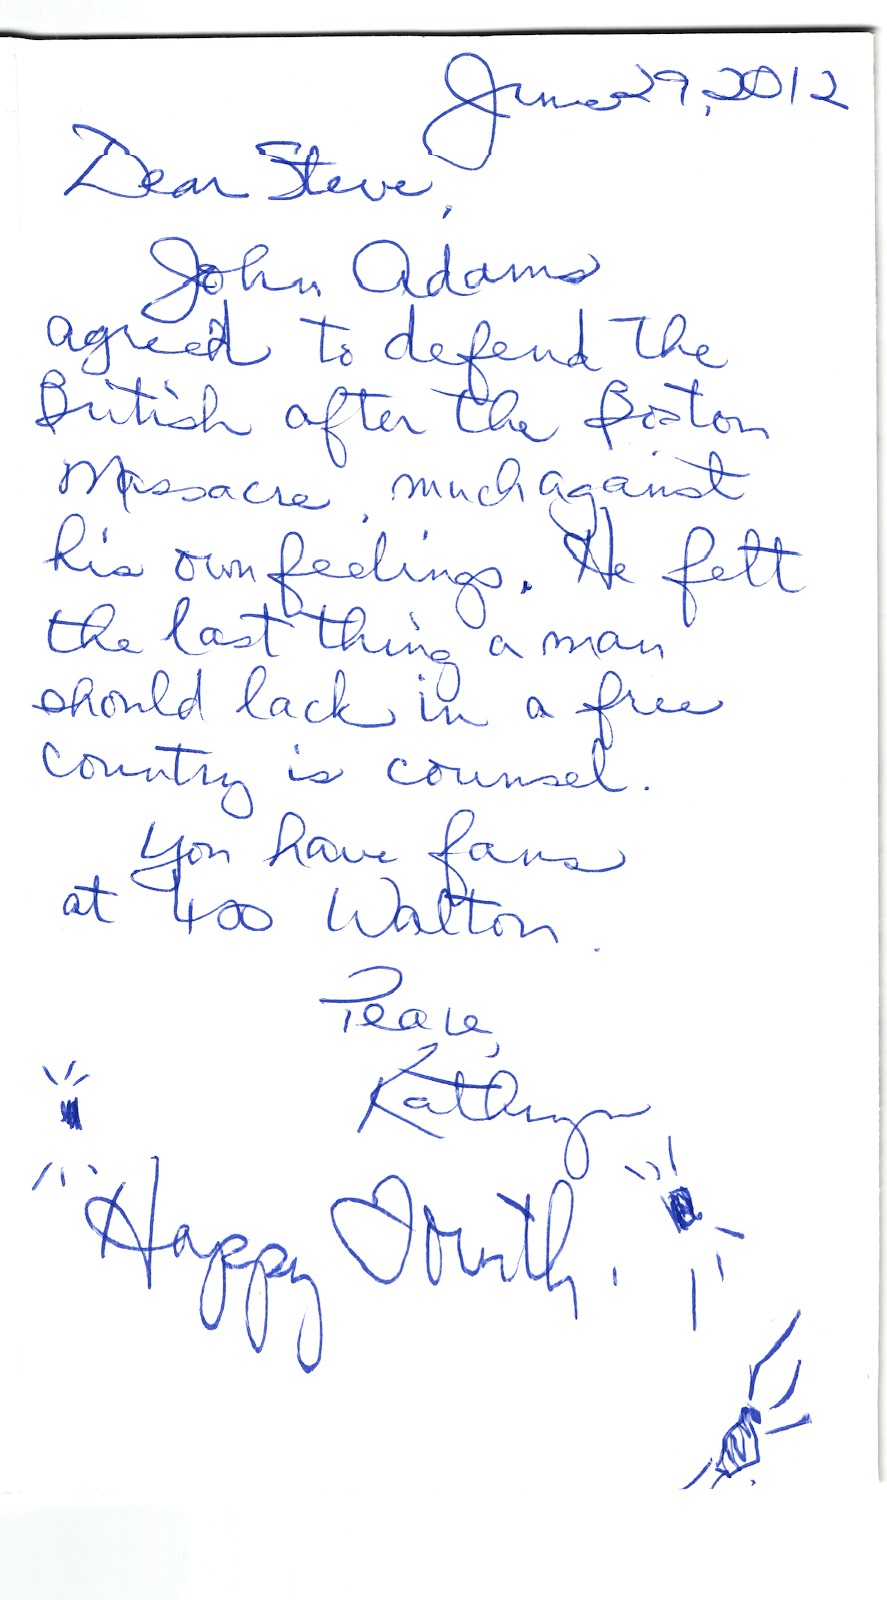 June 29, 2012
Dear Steve,
John Adams
agreed to defend the
British after the Boston
Massacre, much against
his own feelings. He felt
the last thing a man
should lack in a free
country is counsel.
You have fans
at 400 Walton.
Peace,
Kathryn
Happy Fourth!